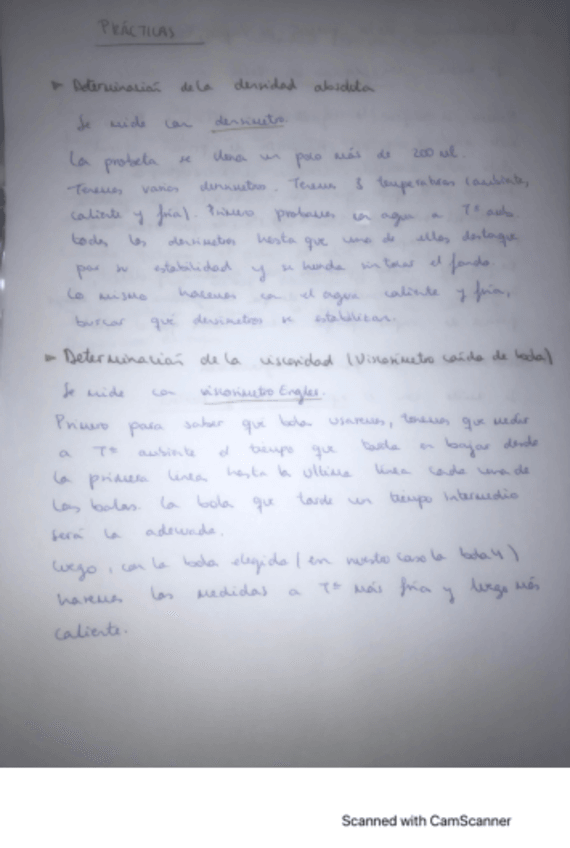 PRÁCTICAS
► Determinación de la densidad absoluta
Se mide con densímetro.
La probeta se llena un poco más de 200 ml.
Tenemos varios densímetros. Tenemos 3 temperaturas (ambiente,
caliente y fría). Primero probamos en agua a Tª amb.
todos los densímetros hasta que uno de ellos destaque
por su estabilidad y se hunda sin tocar el fondo.
Lo mismo hacemos con el agua caliente y fría,
buscar qué densímetros se estabilizan.
► Determinación de la viscosidad (Viscosímetro caída de bola)
Se mide con viscosímetro Engler.
Primero para saber qué bola usaremos, tenemos que medir
a Tª ambiente el tiempo que tarda en bajar desde
la primera línea hasta la última línea cada una de
las bolas. La bola que tarde un tiempo intermedio
será la adecuada.
Luego, con la bola elegida (en nuestro caso la bola 4)
haremos las medidas a Tª más fría y luego más
caliente.
Scanned with CamScanner